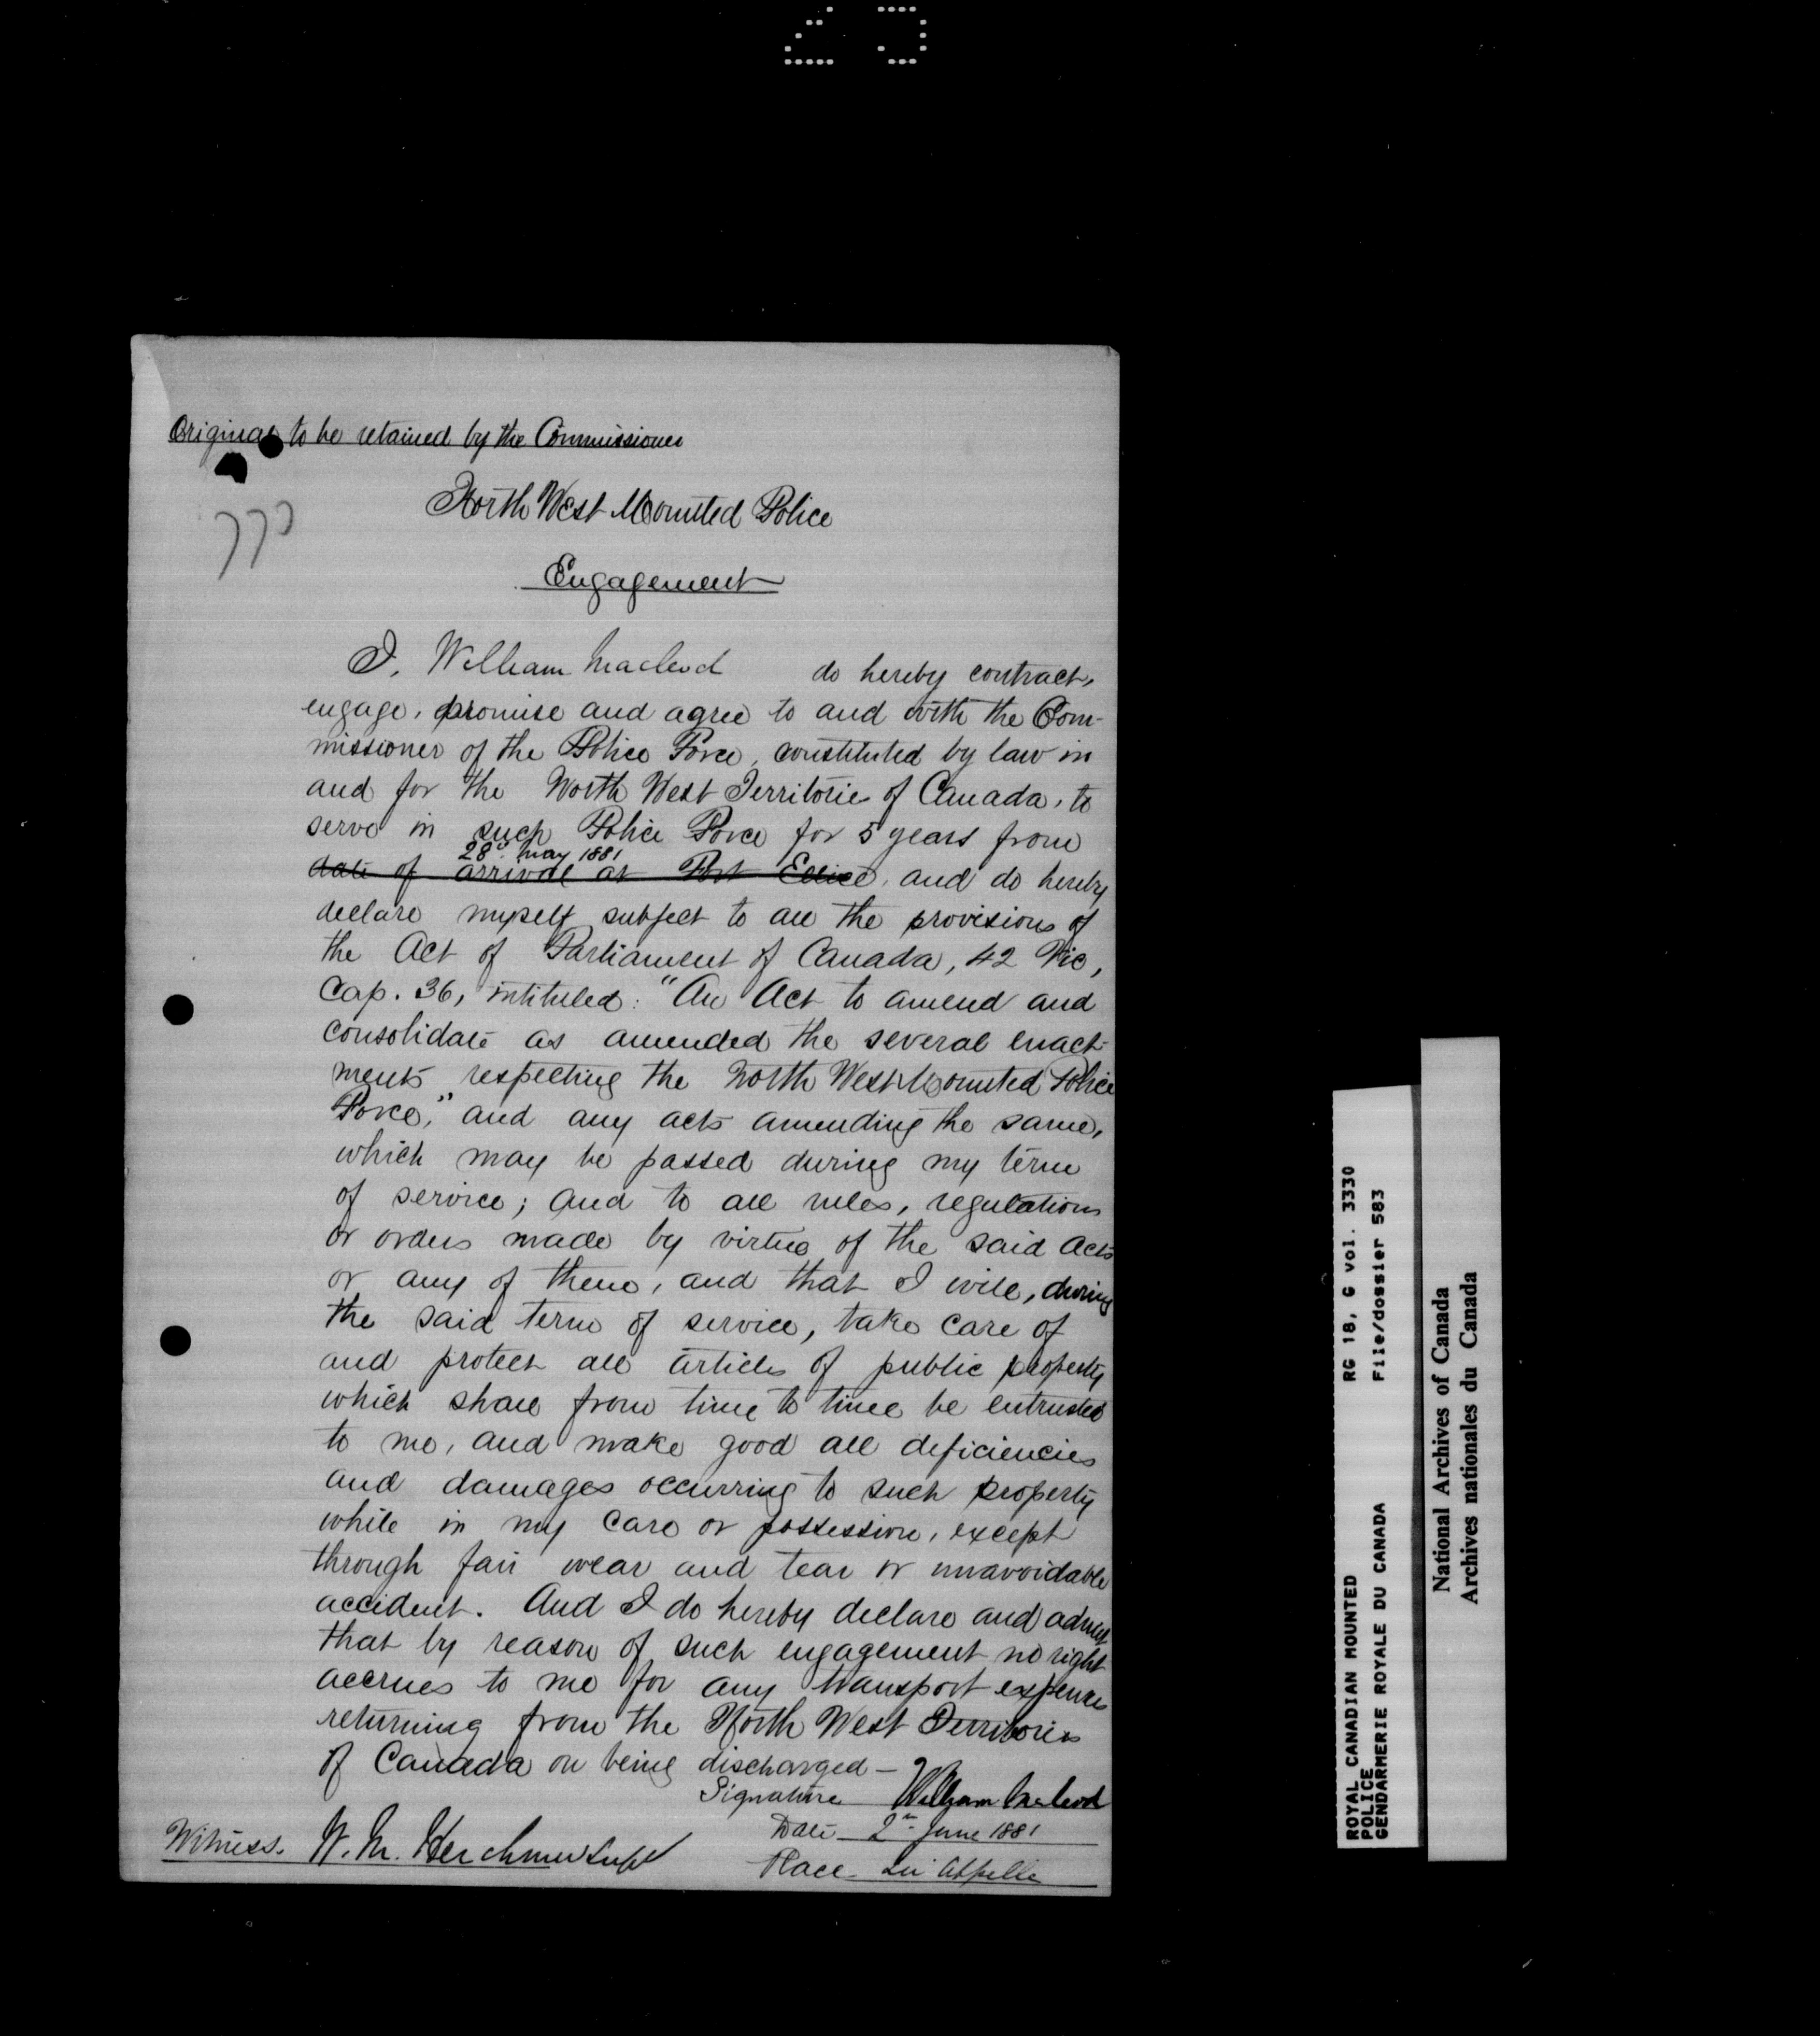 Original to be retained by the Commissioner
North West Mounted Police
Engagement
I, William Macleod do hereby contract,
engage, promise and agree to and with the Com-
missioner of the Police Force, constituted by law in
and for the North West Territories of Canada, to
serve in such Police Force for 5 years from
28th May 1881
date of arrival at Fort Ellice, and do hereby
declare myself subject to all the provisions of
the Act of Parliament of Canada, 42 Vic,
Cap. 36, intituled: "An Act to amend and
consolidate as amended the several enact-
ments respecting the North West Mounted Police
Force," and any acts amending the same,
which may be passed during my term
of service; and to all rules, regulations
or orders made by virtue of the said Acts
or any of them, and that I will, during
the said term of service, take care of
and protect all articles of public property
which shall from time to time be entrusted
to me, and make good all deficiencies
and damages occurring to such property
while in my care or possession, except
through fair wear and tear or unavoidable
accident. And I do hereby declare and admit
that by reason of such engagement no right
accrues to me for any transport expenses
returning from the North West Territories
of Canada on being discharged —
Signature William McLeod
Date 2nd June 1881
Witness. W. M. Herchmer Supt
Place Qu'Appelle
ROYAL CANADIAN MOUNTED RG 18, G vol. 3330
POLICE
GENDARMERIE ROYALE DU CANADA File/dossier 583
National Archives of Canada
Archives nationales du Canada